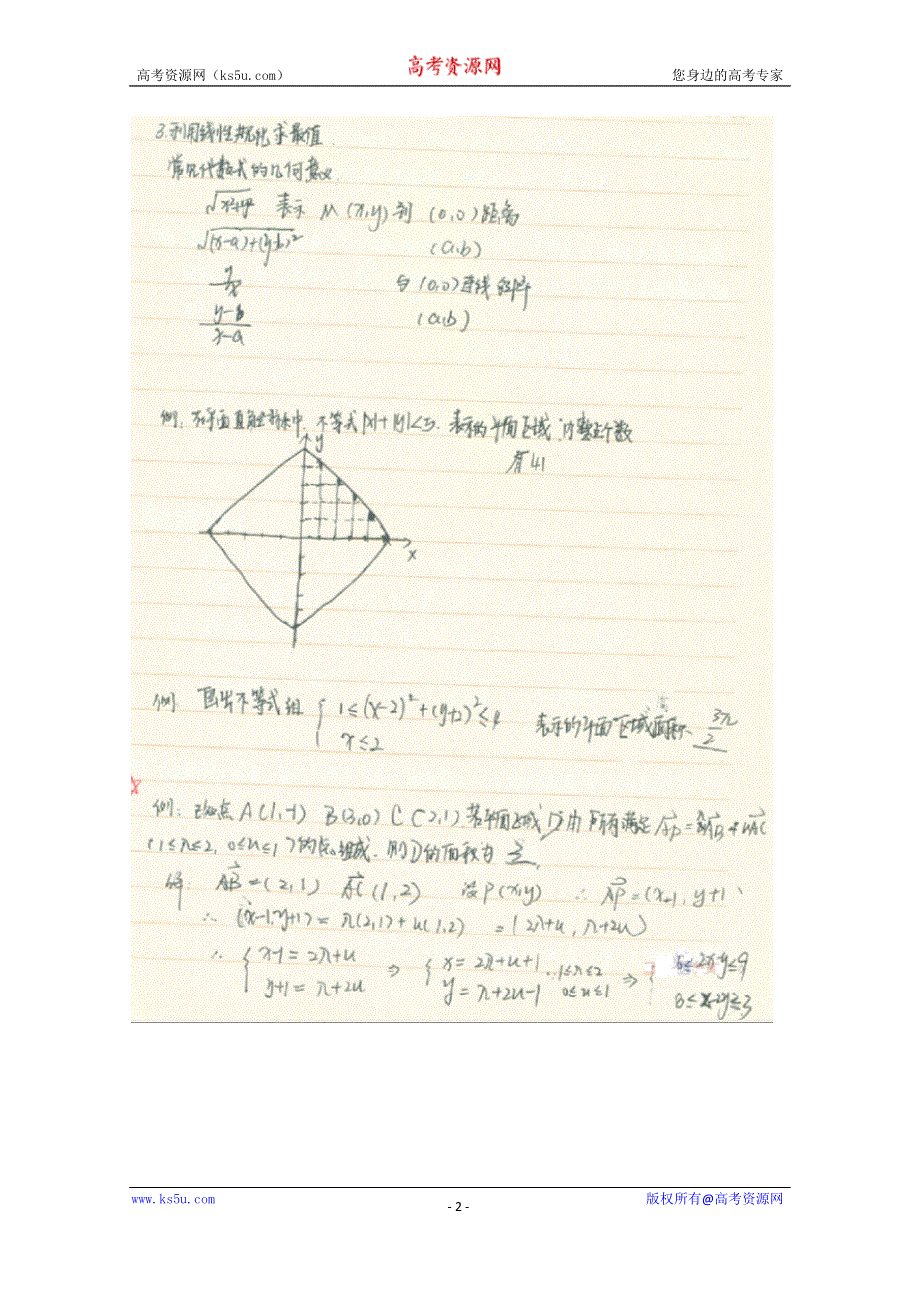 高考资源网（ks5u.com）
高考资源网
您身边的高考专家
3.利用线性规化求最值
常见代数式的几何意义.
√x²+y² 表示 M(x,y)到 (0,0)距离
√(x-a)+(y-b)² (a,b)
y/x 与(0,0)连线斜率
(y-b)/(x-a) (a,b)
例. 在平面直角坐标中, 不等式|x|+|y|<5. 表示的平面区域内整点个数
有41
y
x
例 画出不等式组 { 1≤(x-2)²+(y+2)²≤4 表示的平面区域面积 3π/2
x≤2
例: 已知点A(1,-1) B(3,0) C(2,1) 若平面区域D由所有满足 AP=λAB+uAC
(1≤λ≤2, 0≤u≤1)的点组成. 则D的面积为 3
解: AB=(2,1) AC(1,2) 设P(x,y) ∴ AP=(x-1, y+1)
∴ (x-1,y+1)=λ(2,1)+u(1,2) =(2λ+u, λ+2u)
∴ { x-1=2λ+u ⇒ { x=2λ+u+1 1≤λ≤2 ⇒ { 6≤2x-y≤9
y+1=λ+2u y=λ+2u-1 0≤u≤1 x-2y≤3
www.ks5u.com
- 2 -
版权所有@高考资源网